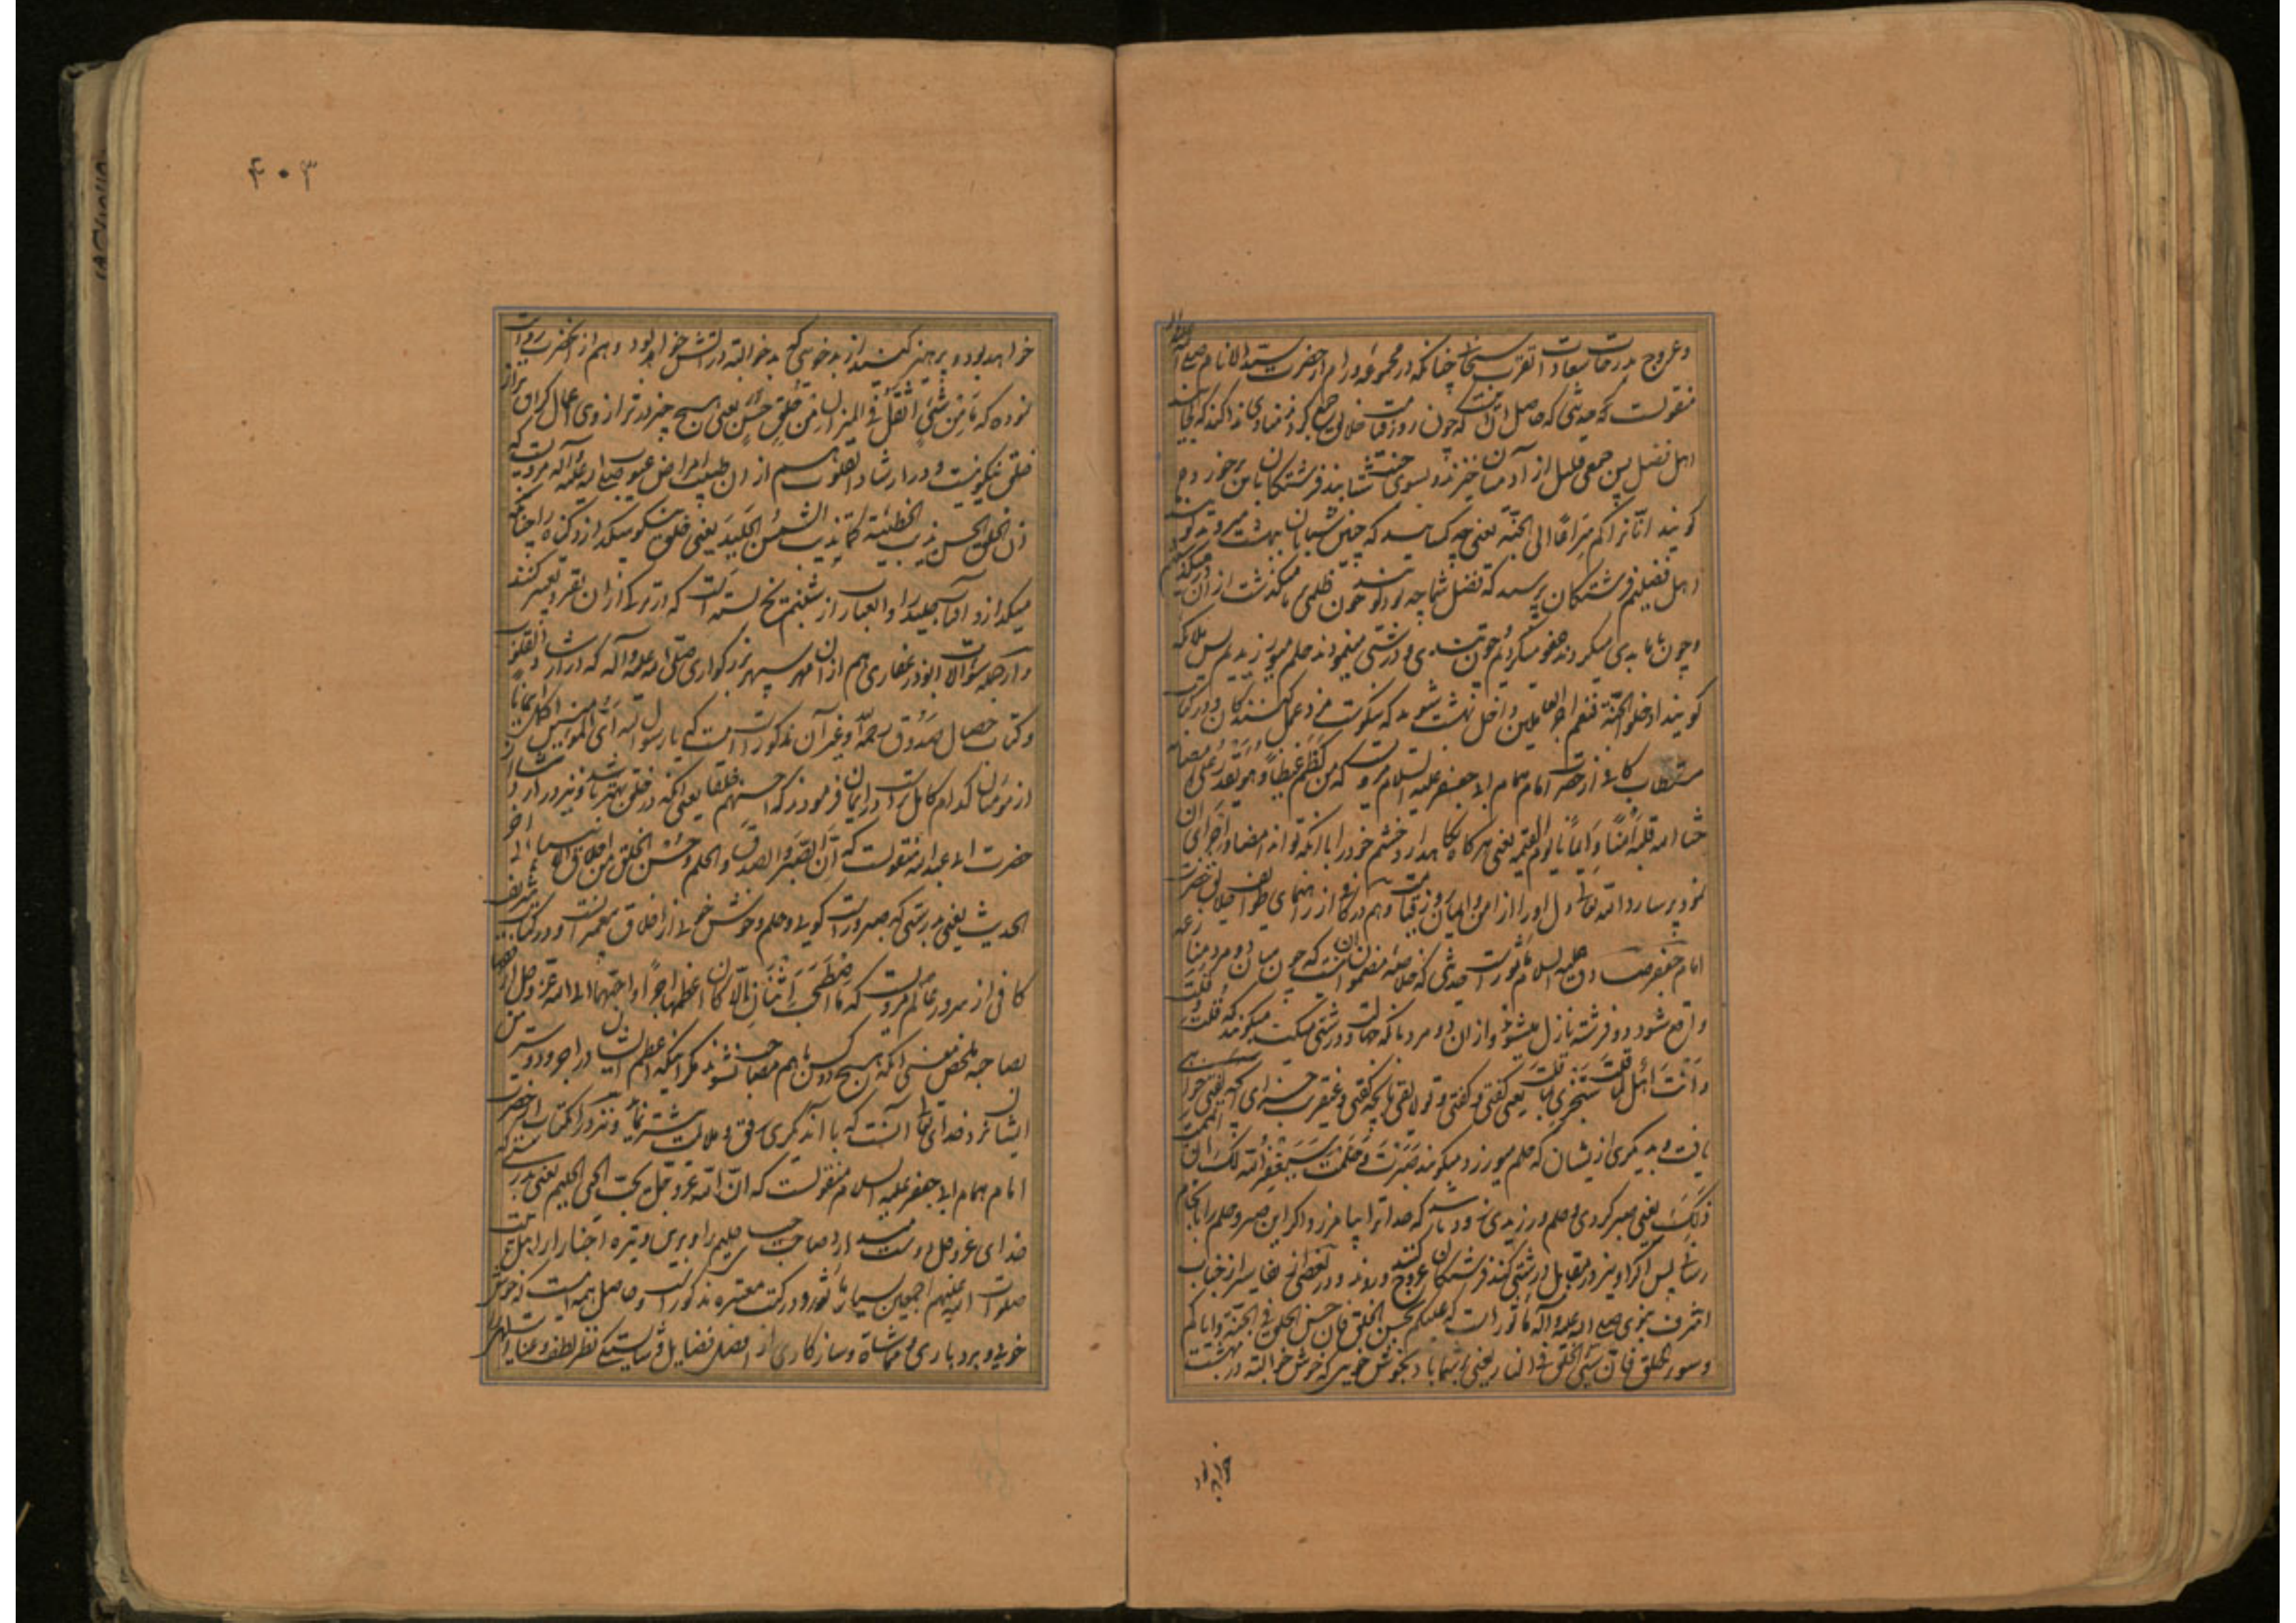 وعروج بدرجات سعادات تقرب سبحانی چنانکه در مجموعه ورام از حضرت سید الانام صلی الله علیه واله
منقولست که حدیثی که حاصلش آنست که چون روز قیامت خلایق جمع کردند منادی ندا کند که کجااند
اهل فضل پس جمعی قلیل از آدمیان خیزند و بسوی جنت شتابند فرشتگان بایشان برخورده
کویند انا نراکم سراعا الی الجنة یعنی چه کسانید که چنین شتابان ببهشت میروید کویند
اهل فضلیم فرشتگان پرسند که فضل شما چه بود کویند چون ظلمی بما میکذشت از آن در میکذشتیم
وچون بما بدی میکردند عفو میکردیم و چون تندی و درشتی مینمودند حلم میورزیدیم پس ملائکه
کویند ادخلوا الجنة فنعم اجر العاملین داخل بهشت شوید که نیکوست مزد عمل کنندکان و در کتاب
مستطاب کافی از حضرت امام همام ابی جعفر علیه السلام مرویست که من کظم غیظا وهو یقدر علی امضائه
حشا الله قلبه امنا وایمانا یوم القیمه یعنی هر که نکاهدارد خشم خود را با آنکه تواند امضا و اجرای آن
نمود پر سازد الله تعالی دل او را از امن و ایمان روز قیامت وهم در کافی از رهنمای طوایف خلایق حضرت
امام جعفر صادق علیه السلام ماثورست حدیثی که خلاصه مضمونش آنست که چون میان دو مرد منازعه
واقع شود دو فرشته نازل میشوند و از آن دو مرد بآنکه جهالت و درشتی میکند میکویند که قلت وقلت
وانت اهل لما قلت ستجزی بما قلت یعنی کفتی و کفتی و تو لایقی بآنچه کفتی و عنقریب جزای آنچه کفتی خواهی
یافت و بدیکری از ایشان که حلم میورزد میکویند صبرت وحلمت سیغفر الله لک ان اتممت
ذلک یعنی صبر کردی و حلم ورزیدی زود باشد که خدا ترا بیامرزد اکر این صبر و حلم را بانجام
رسانی پس اکر او نیز در مقابل درشتی کند فرشتکان عروج کنند و روند و در بعضی نسخ نفایس از جناب
اشرف نبوی صلی الله علیه واله ماثورست که علیکم بحسن الخلق فان حسن الخلق فی الجنة وایاکم
وسوء الخلق فان سیئ الخلق فی النار یعنی بر شما باد بخوش خویی که خوش خو البته در بهشت
خواهد بود
۴۰۳
خواهد بود و پرهیز کنید از بدخویی که بدخو البته در آتش خواهد بود و هم از آنحضرت روایت
نموده که ما من شیء اثقل فی المیزان من خلق حسن یعنی هیچ چیز در ترازوی اعمال کران تر از
خلق نیکو نیست و در ارشاد القلوب هم از آن طبیب امراض عیوب صلی الله علیه واله مرویست که
ان الخلق الحسن یذیب الخطیئة کما تذیب الشمس الجلید یعنی خلق نیکو میکدازد کناه را چنانکه
میکدازد آفتاب جلید را و آن عبارت از شبنم یخ بسته است که در ترکی از آن بقرو تعبیر کنند
و از جمله سؤالات ابوذر غفاری هم از آن مهر سپهر بزرکواری صلی الله علیه واله که در ارشاد القلوب
و کتاب خصال صدوق رحمه الله و غیر آن مذکورست اینست که یا رسول الله ای المؤمنین اکمل ایمانا
از مؤمنان کدام کامل تر است در ایمان فرمودند که احسنهم خلقا یعنی آنکه در خلق بهتر باشد و نیز در ارشاد از
حضرت ابی عبد الله منقولست که ان الصبر والصدق والحلم وحسن الخلق من اخلاق الانبیاء الی آخر
الحدیث یعنی بدرستی که صبر و راست کویی و حلم و خوش خویی از اخلاق پیغمبرانست و در کتاب شریف
کافی از سرور عالم مرویست که ما اصطحب اثنان الا کان اعظمهما اجرا واحبهما الی الله عز وجل ارفقهما
بصاحبه ملخص معنی آنکه هیچ دو کس با هم مصاحب نشوند مکر اینکه اعظم ایشان در اجر و دوستر
ایشان نزد خدای تعالی آنست که با آن دیکری رفق و ملایمت بیشتر نماید و نیز در آن کتاب از حضرت
امام همام ابی جعفر علیه السلام منقولست که ان الله عز وجل یحب الحیی الحلیم یعنی بدرستی که
خدای عز وجل دوست میدارد صاحب حیای حلیم را و برین وتیره اخبار از اهل بیت
صلوات الله علیهم اجمعین بسیار ماثور و در کتب معتبره مذکورست و حاصل همه اینست که خوش
خویی و بردباری و مماشاة و سازکاری از افضل فضایل و شایستکی نظر لطف و عنایت الهی را